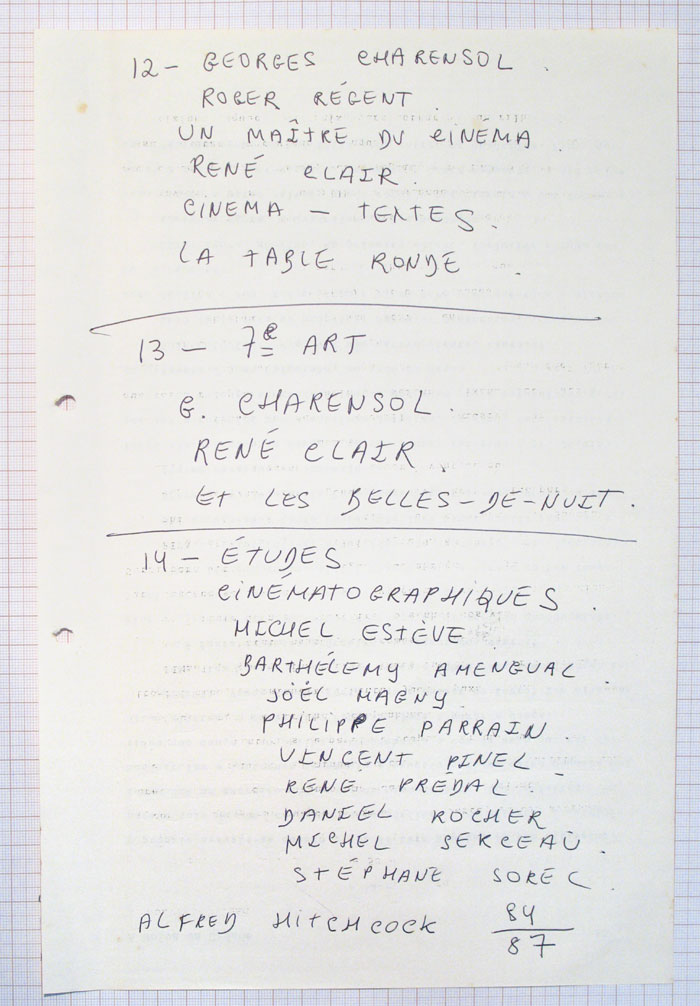 12 - GEORGES CHARENSOL.
ROGER RÉGENT.
UN MAÎTRE DU CINÉMA.
RENÉ CLAIR.
CINEMA - TEXTES.
LA TABLE RONDE.
13 - 7e ART
G. CHARENSOL.
RENÉ CLAIR.
ET LES BELLES-DE-NUIT.
14 - ÉTUDES
CINÉMATOGRAPHIQUES.
MICHEL ESTÈVE.
BARTHÉLEMY AMENGUAL.
JOËL MAGNY.
PHILIPPE PARRAIN.
VINCENT PINEL.
RENÉ PRÉDAL
DANIEL ROCHER
MICHEL SERCEAU.
STÉPHANE SOREL.
ALFRED HITCHCOCK 84
87